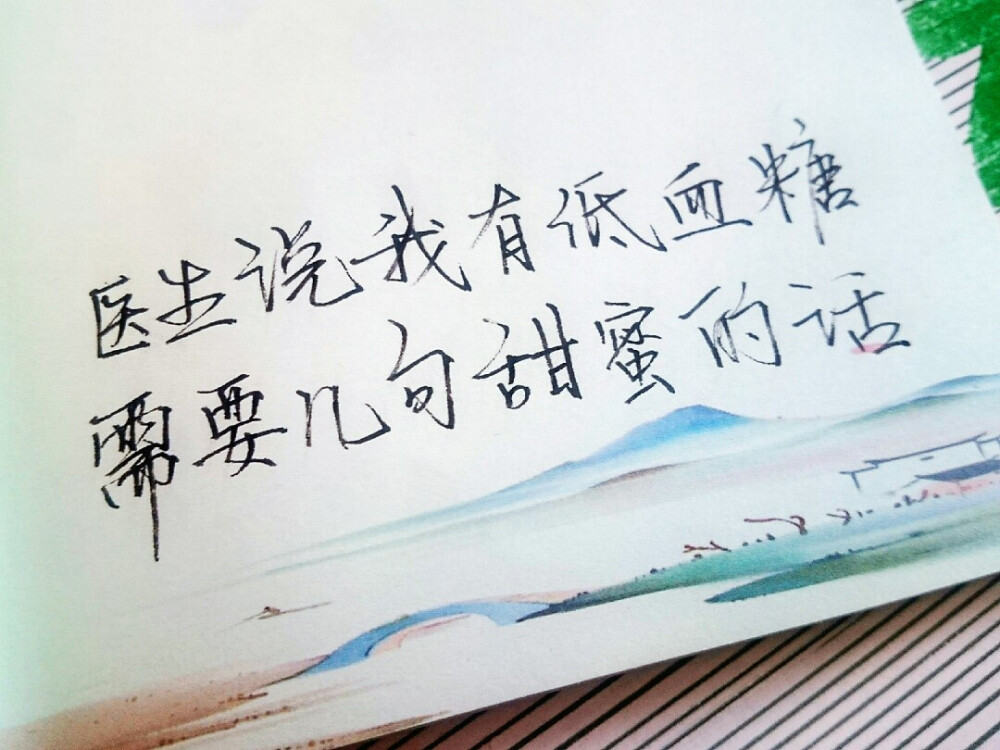 医生说我有低血糖
需要几句甜蜜的话